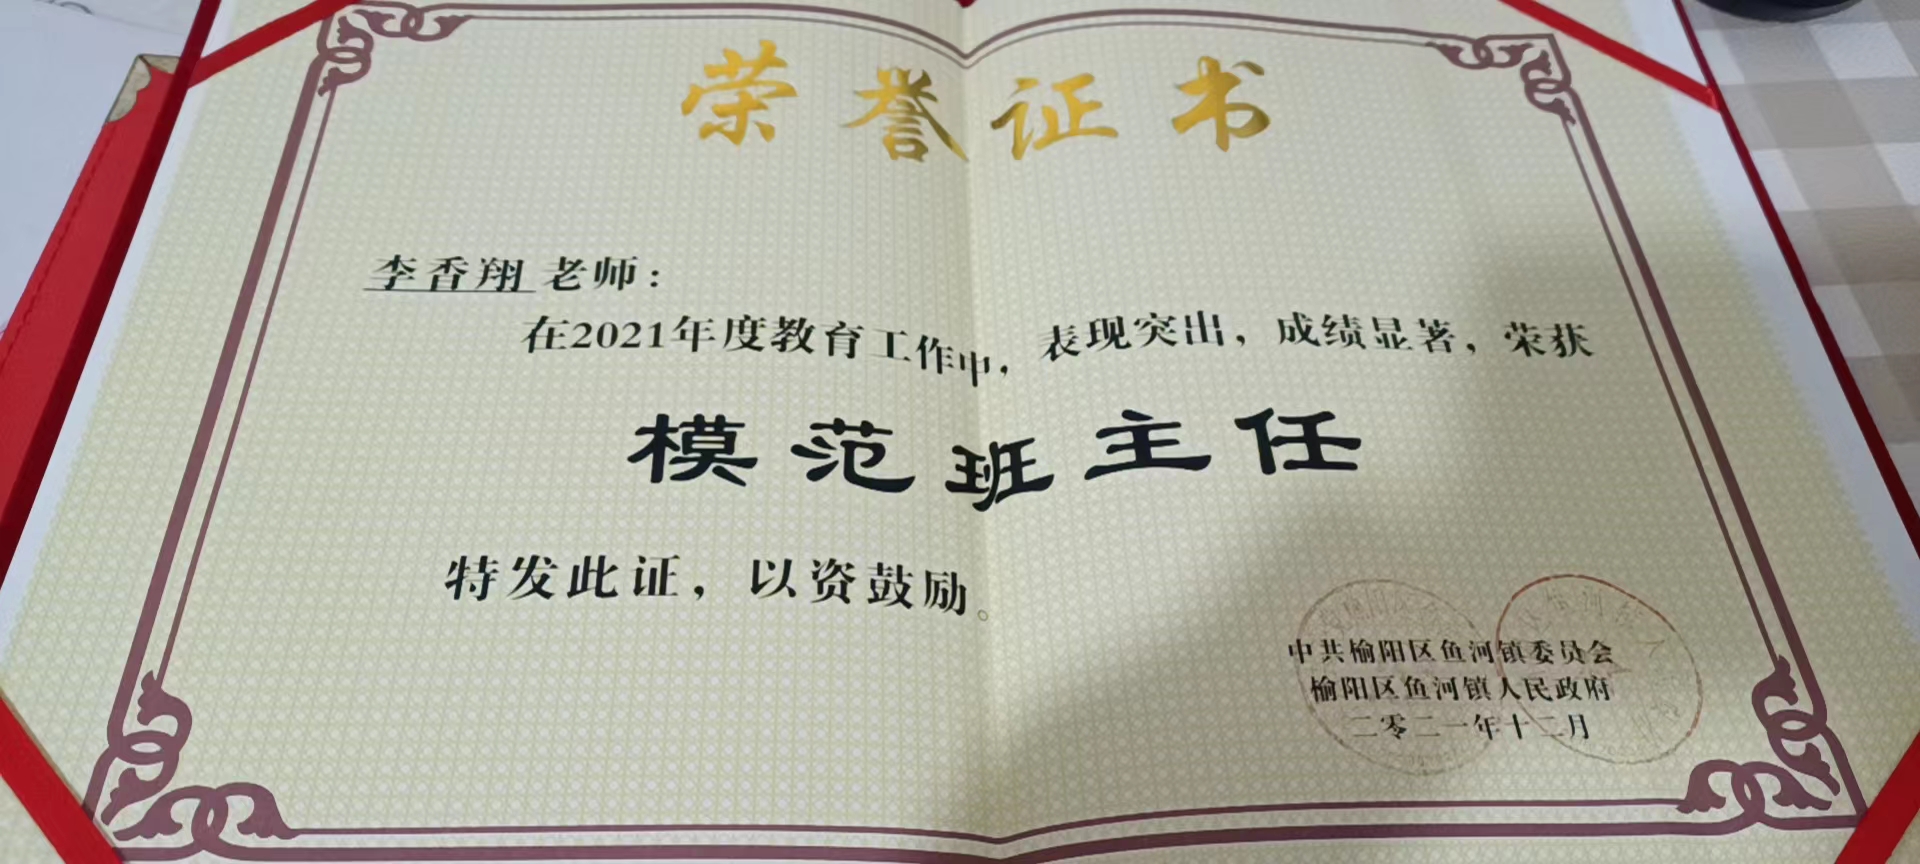 荣誉证书
李香翔 老师：
在2021年度教育工作中，表现突出，成绩显著，荣获
模范班主任
特发此证，以资鼓励。
中共榆阳区鱼河镇委员会
榆阳区鱼河镇人民政府
二零二一年十二月